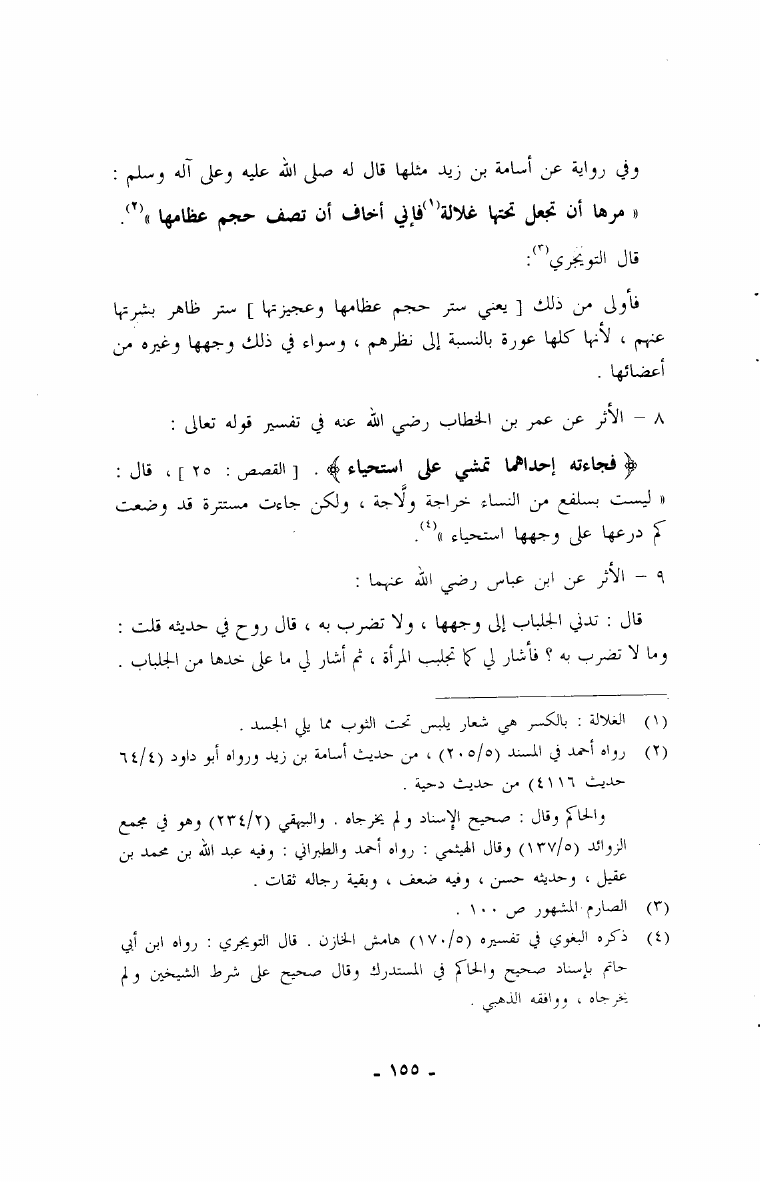 وفي رواية عن أسامة بن زيد مثلها قال له صلى الله عليه وعلى آله وسلم :
« مرها أن تجعل تحتها غلالة(١)فإني أخاف أن تصف حجم عظامها »(٢).
قال التويجري(٣):
فأولى من ذلك [ يعني ستر حجم عظامها وعجيزتها ] ستر ظاهر بشرتها
عنهم ، لأنها كلها عورة بالنسبة إلى نظرهم ، وسواء في ذلك وجهها وغيره من
أعضائها .
٨ – الأثر عن عمر بن الخطاب رضي الله عنه في تفسير قوله تعالى :
﴿ فجاءته إحداهما تمشي على استحياء ﴾ . [ القصص : ٢٥ ] ، قال :
« ليست بسلفع من النساء خراجة ولَّاجة ، ولكن جاءت مستترة قد وضعت
كم درعها على وجهها استحياء »(٤).
٩ – الأثر عن ابن عباس رضي الله عنهما :
قال : تدني الجلباب إلى وجهها ، ولا تضرب به ، قال روح في حديثه قلت :
وما لا تضرب به ؟ فأشار لي كما تجلبب المرأة ، ثم أشار لي ما على خدها من الجلباب .
(١) الغلالة : بالكسر هي شعار يلبس تحت الثوب مما يلي الجسد .
(٢) رواه أحمد في المسند (٢٠٥/٥) ، من حديث أسامة بن زيد ورواه أبو داود (٦٤/٤
حديث ٤١١٦) من حديث دحية .
والحاكم وقال : صحيح الإسناد ولم يخرجاه . والبيهقي (٢٣٤/٢) وهو في مجمع
الزوائد (١٣٧/٥) وقال الهيثمي : رواه أحمد والطبراني : وفيه عبد الله بن محمد بن
عقيل ، وحديثه حسن ، وفيه ضعف ، وبقية رجاله ثقات .
(٣) الصارم المشهور ص ١٠٠ .
(٤) ذكره البغوي في تفسيره (١٧٠/٥) هامش الخازن . قال التويجري : رواه ابن أبي
حاتم بإسناد صحيح والحاكم في المستدرك وقال صحيح على شرط الشيخين ولم
يخرجاه ، ووافقه الذهبي .
- ١٥٥ -